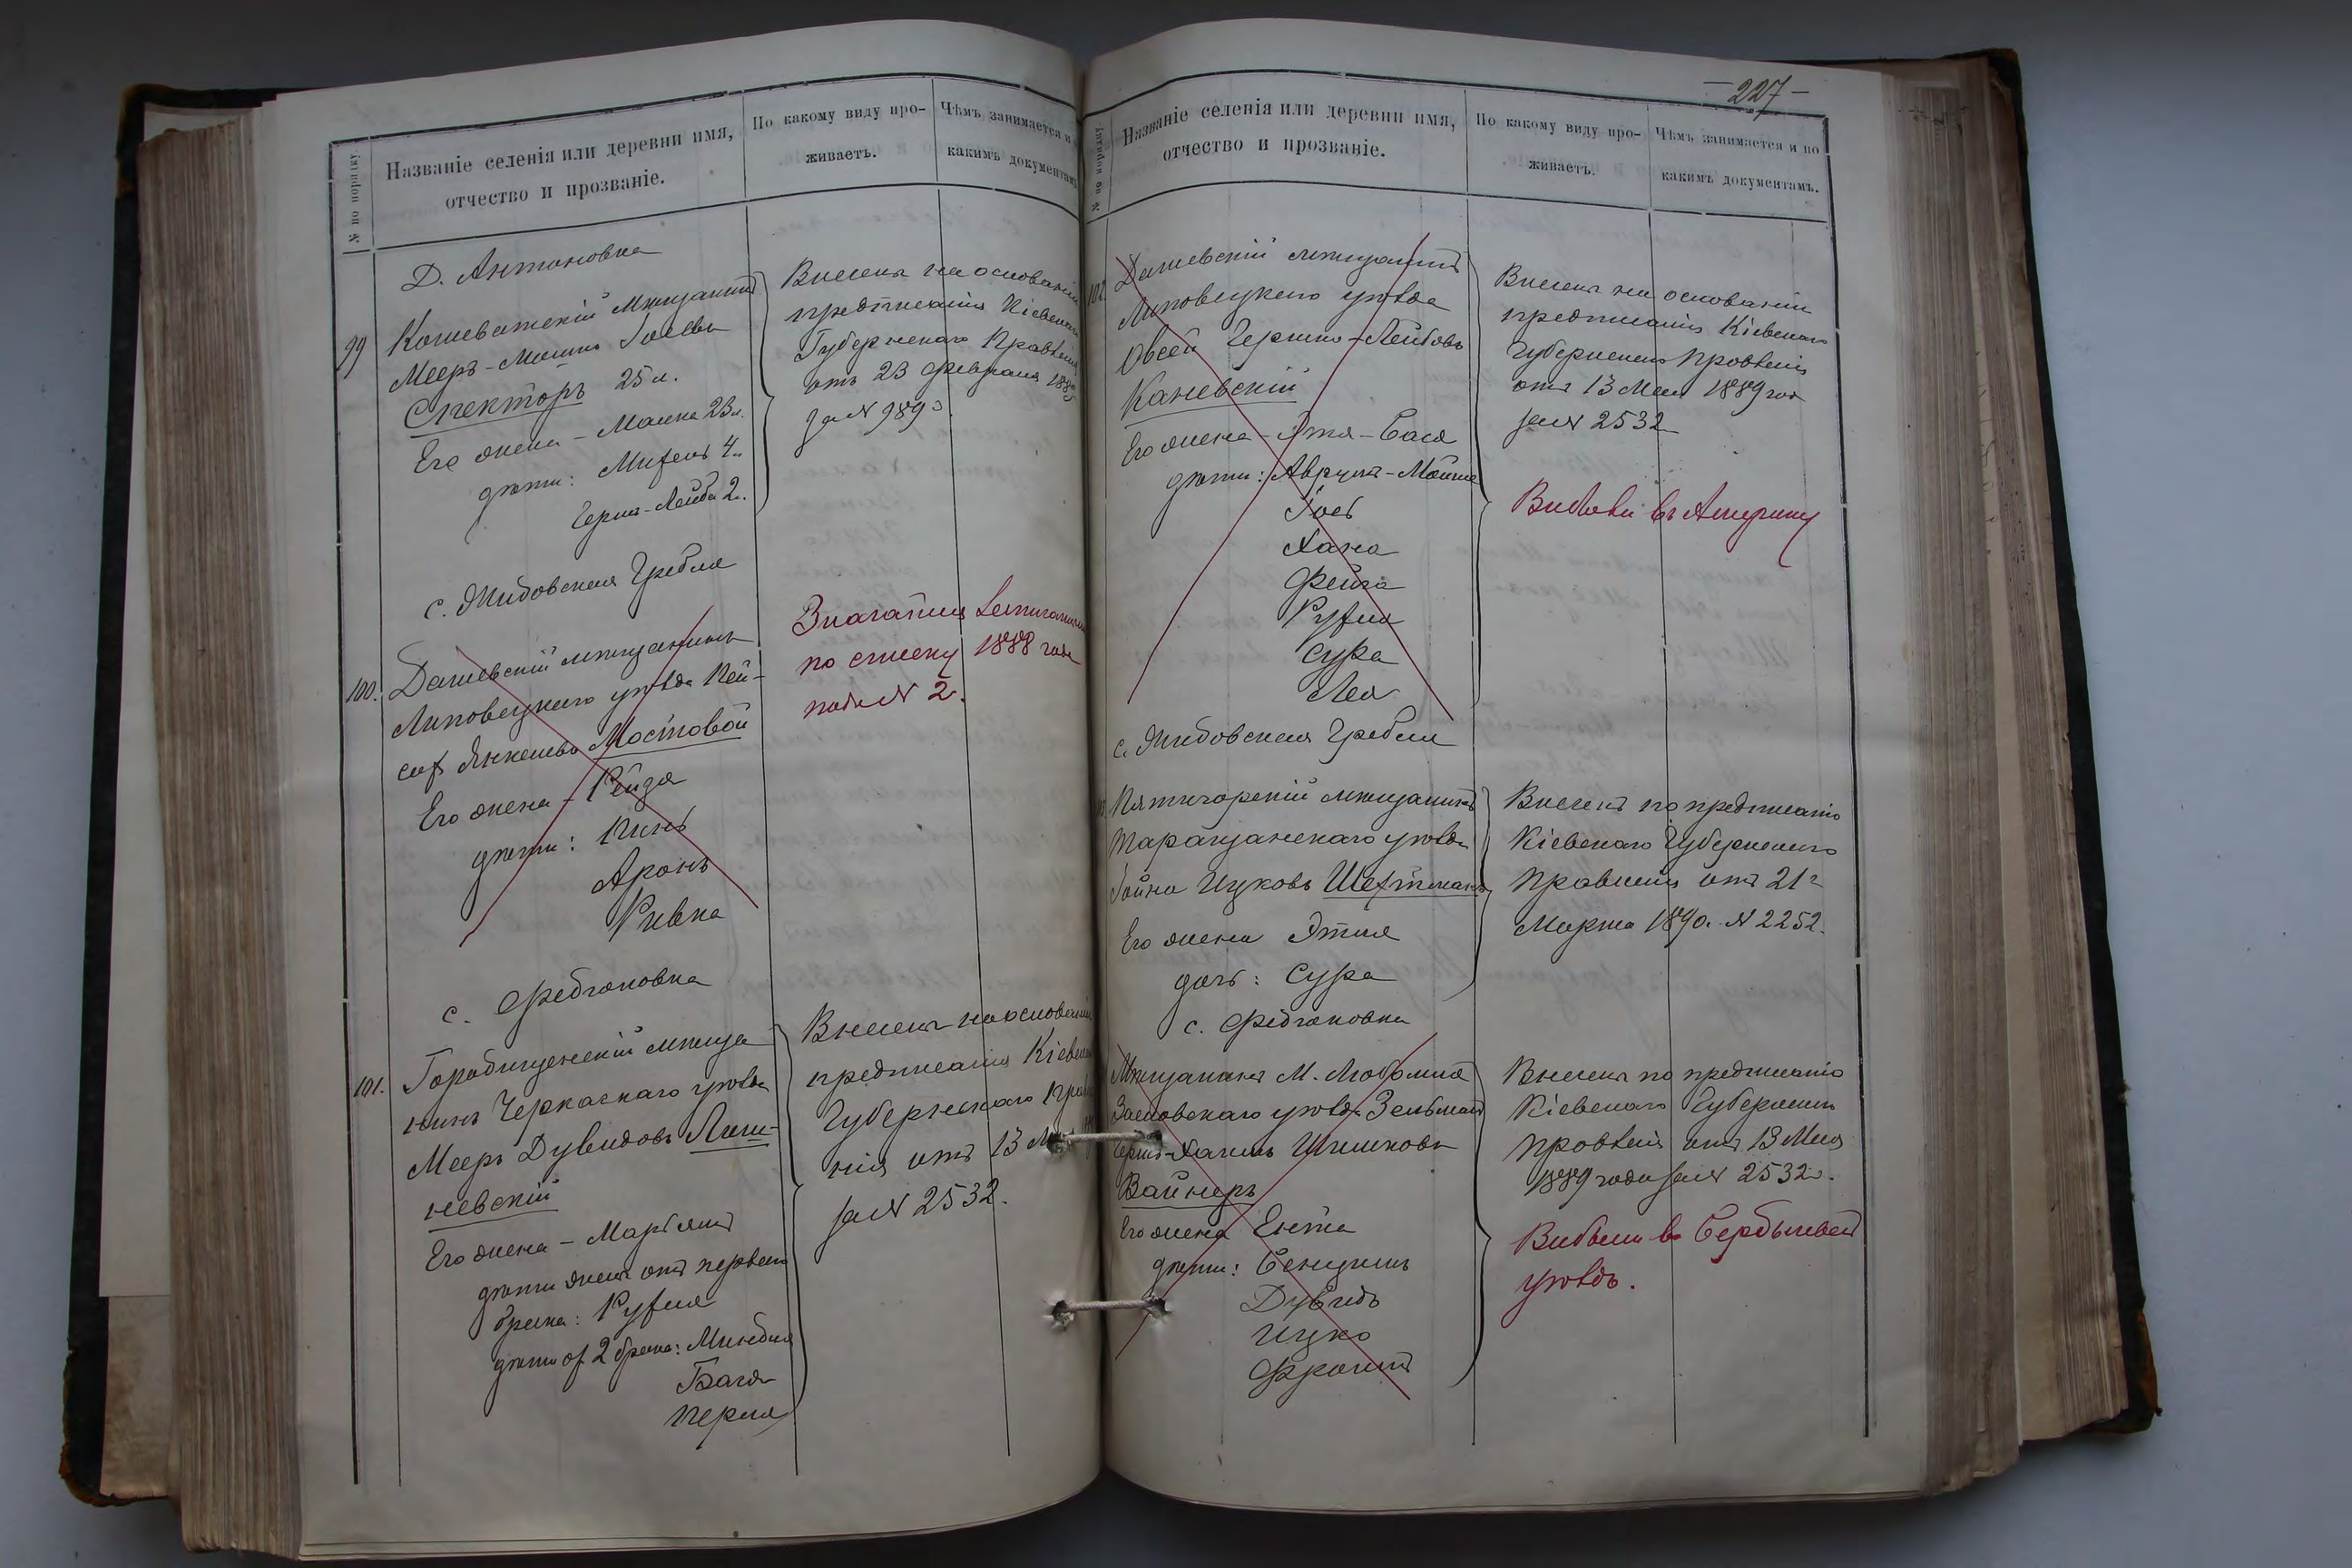 № по порядку
Названіе селенія или деревни имя,
отчество и прозваніе.
По какому виду про-
живаетъ.
Чѣмъ занимается и
какимъ документамъ
Д. Антоновка
99
Кошеватскій мѣщанинъ
Мееръ-Мошко Іосевъ
Спекторъ 25 л.
Его жена - Малка 23 л.
дѣти:
Гершъ-Лейба 2 л.
Внесенъ на основаніи
предписанія Кіевскаго
Губернскаго Правленія
отъ 23 февраля
за № 989
с. Жидовская Гребля
100.
Дашевскій мѣщанинъ
Липовецкаго уѣзда Кей-
Янкелевъ Мостовой
Его жена - Рейзя
дѣти: Кинь
Аронъ
Ривка
Значатся
по списку 1888 года
подъ № 2.
с. Федюковка
101.
Городищенскій мѣща
нинъ Черкаскаго уѣзда
Мееръ Дувидовъ Лиш-
невскій
Его жена - Марьямъ
дѣти жены отъ перваго
брака: Рухля
дѣти отъ 2 брака: Миндля
Бася
Перля
Внесенъ на основаніи
предписанія Кіевскаго
Губернскаго Правле
нія отъ 13 Мая
за № 2532.
-227-
№ по порядку
Названіе селенія или деревни имя,
отчество и прозваніе.
По какому виду про-
живаетъ.
Чѣмъ занимается и по
какимъ документамъ.
102
Дашевскій мѣщанинъ
Липовецкаго уѣзда
Овсей Гершко-Лейбовъ
Каневскій
Его жена - Этя-Бася
дѣти: Аврумъ-Мойше
Іось
Хана
Фейга
Рухля
Сура
Лея
Внесенъ на основаніи
предписанія Кіевскаго
Губернскаго Правленія
отъ 13 Мая 1889 года
за № 2532
Выбыли въ Америку
с. Жидовская Гребля
Пятигорскій мѣщанинъ
Таращанскаго уѣзда
Іойна Ицковъ Шехтманъ
Его жена Этля
дочь: Сура
Внесенъ по предписанію
Кіевскаго Губернскаго
Правленія отъ 21го
Марта 1890 г. № 2252.
с. Федюковка
Мѣщанинъ М. Любомля
Заславскаго уѣзда Зельманъ
Гершъ-Хаимъ Ицшковъ
Вайнеръ
Его жена Ента
дѣти: Бенциинъ
Дувидъ
Ицко
Фроимъ
Внесенъ по предписанію
Кіевскаго Губернскаго
Правленія отъ 13 Мая
1889 года за № 2532.
Выбыли въ Бердичевскій
уѣздъ.